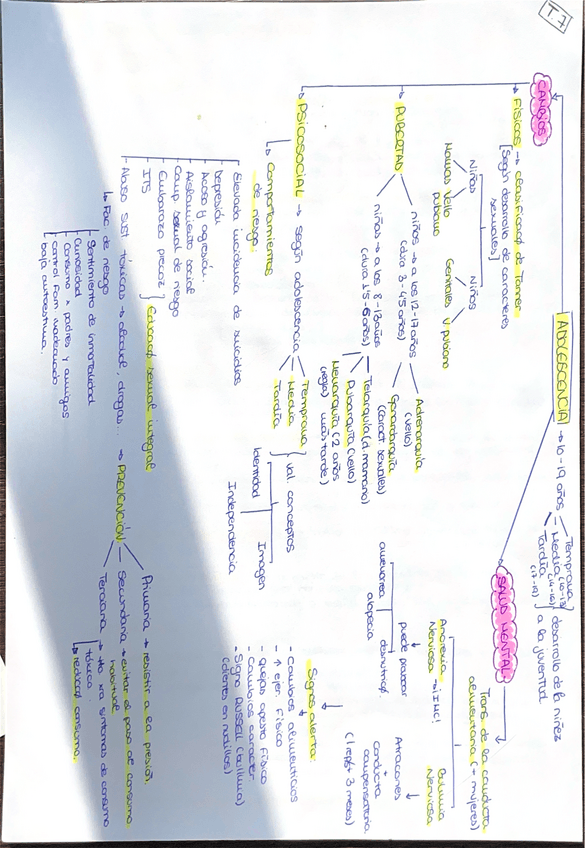 T.7
ADOLESCENCIA → 10-19 años
Temprana (10-13)
Media (14-16)
Tardía (17-19)
desarrollo de la niñez
a la juventud
CAMBIOS
FÍSICOS → clasificaç de Tanner
[según desarrollo de caracteres
sexuales]
Niñas
Niños
Mamas
Vello
púbico
Genitales
V. púbico
PUBERTAD
niños → a los 12-17 años
(dura 3-4,5 años)
niñas → a los 8-13 años
(dura 1,5-6 años)
Adrenarquía
(vello)
Gonadarquía
(caract. sexuales)
Telarquía (d. mamario)
Pubarquía (vello)
Menarquía (2 años
(regla) más tarde)
PSICOSOCIAL → según adolescencia
Temprana
Media
Tardía
val. conceptos
Identidad
Imagen
Independencia
↳ Comportamientos
de riesgo
Elevada incidencia de suicidios
Depresión
Acoso y agresión.
Aislamiento social
Comp sexual de riesgo
Embarazo precoz
ITS
Educaç sexual integral
Abuso sust tóxicas → alcohol, drogas... → PREVENCIÓN
↳ Fac. de riesgo
Sentimiento de inmortalidad
Curiosidad
Consumo x padres y amigos
control Fam inadecuado
baja autoestima.
Primaria → resistir a la presión.
Secundaria → evitar el paso de consumo
habitual
Terciaria → tto xra síntomas de consumo
tóxico
↳ reducç consumo.
SALUD MENTAL
Trans. de la conducta
alimentaria (+ mujeres)
Anorexia
Nerviosa → ¡IMC!
puede provocar
amenorrea
desnutriç.
alopecia
Bulimia
Nerviosa
Atracones
Conducta
compensatoria
Signos alerta:
- Cambios alimenticios
- ↑ ejer. físico
- quejas aspecto físico
- Cambios carácter
- Signos RUSSELL (bulimia)
(dientes en nudillos)